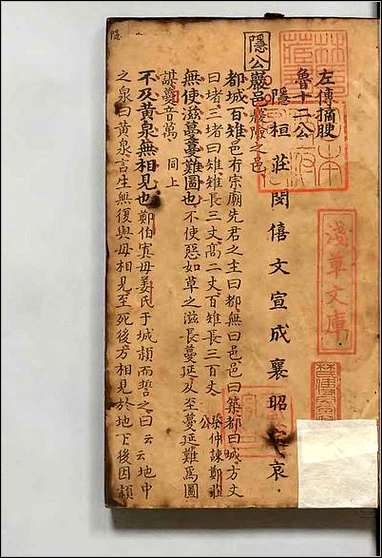 左傳摘腴
魯十二公
隱桓莊閔僖文宣成襄昭定哀
隱公
嚴邑殽險之邑
都城百雉邑有宗廟先君之主曰都無曰邑邑曰築都曰城方丈
曰堵三堵曰雉雉長三丈高一丈百雉長三百丈 祭仲諫鄭莊公
無使滋蔓蔓難圖也不使惡如草之滋長蔓延及至蔓延難爲圖
謀蔓音萬 同上
不及黃泉無相見也鄭伯寘母姜氏于城潁而誓之曰云云地中
之泉曰黃泉言生無復與母相見至死後方相見於地下後因潁
淺草文庫
隱 一